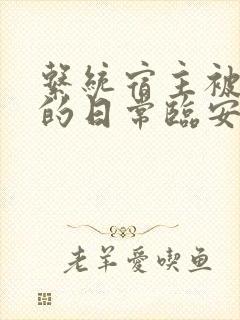 繫統宿主被
的日常臨安
老羊愛喫鱼